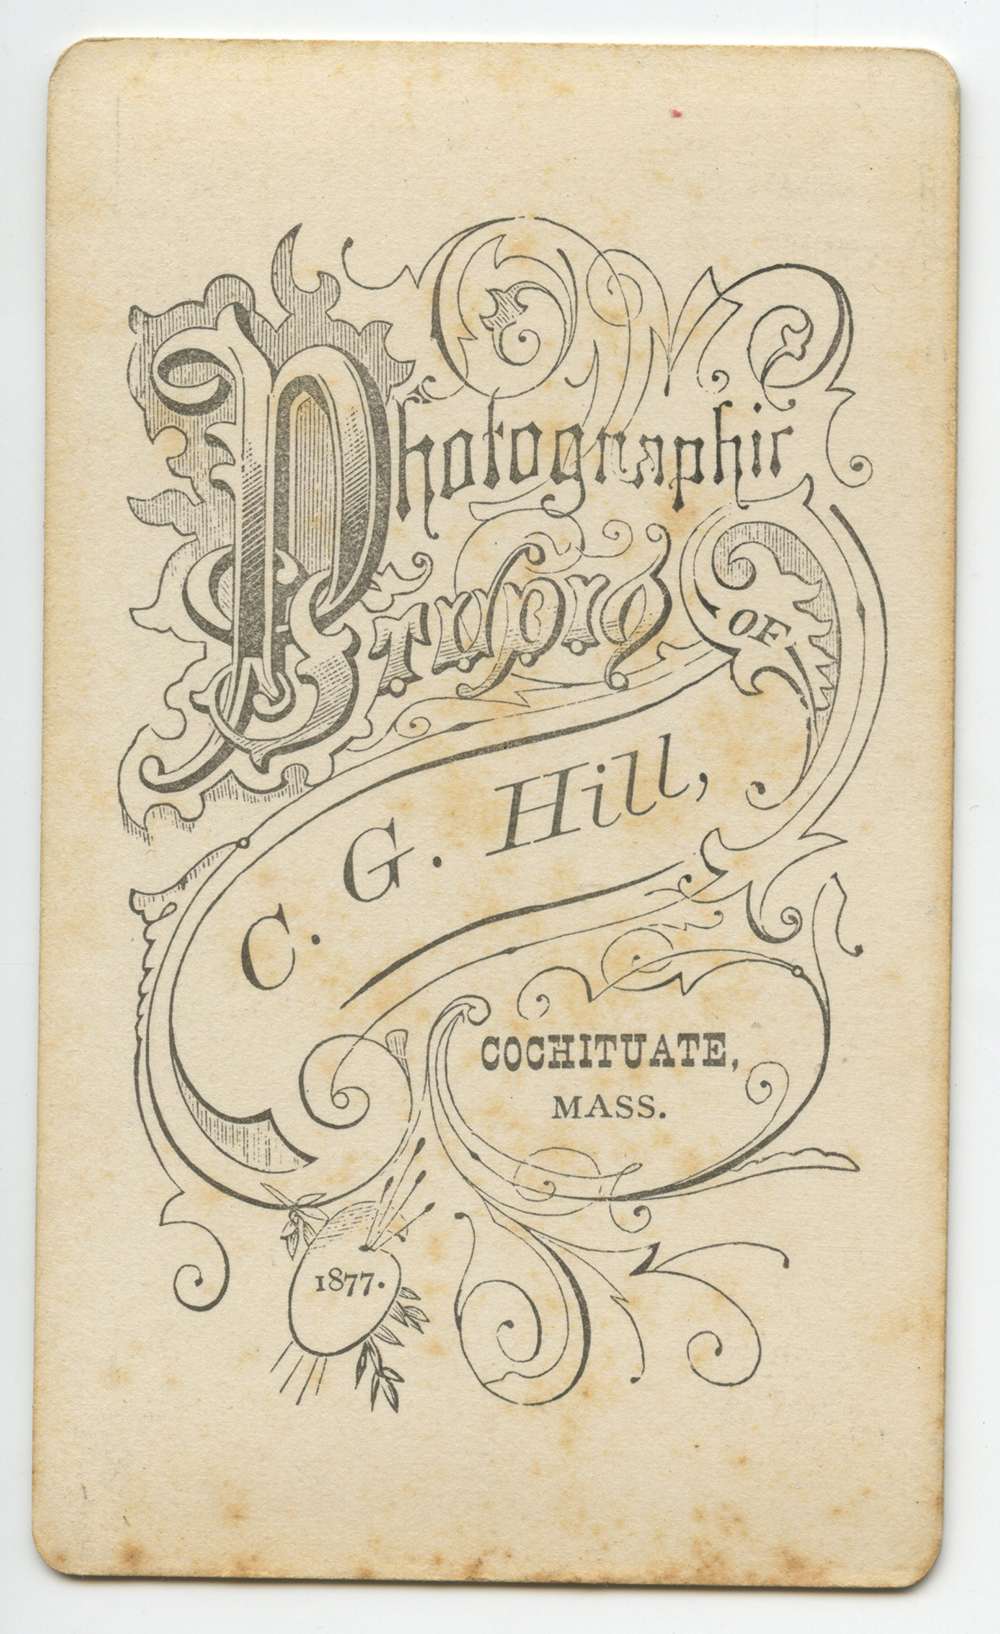 Photographic
OF
C. G. Hill,
COCHITUATE,
MASS.
1877.